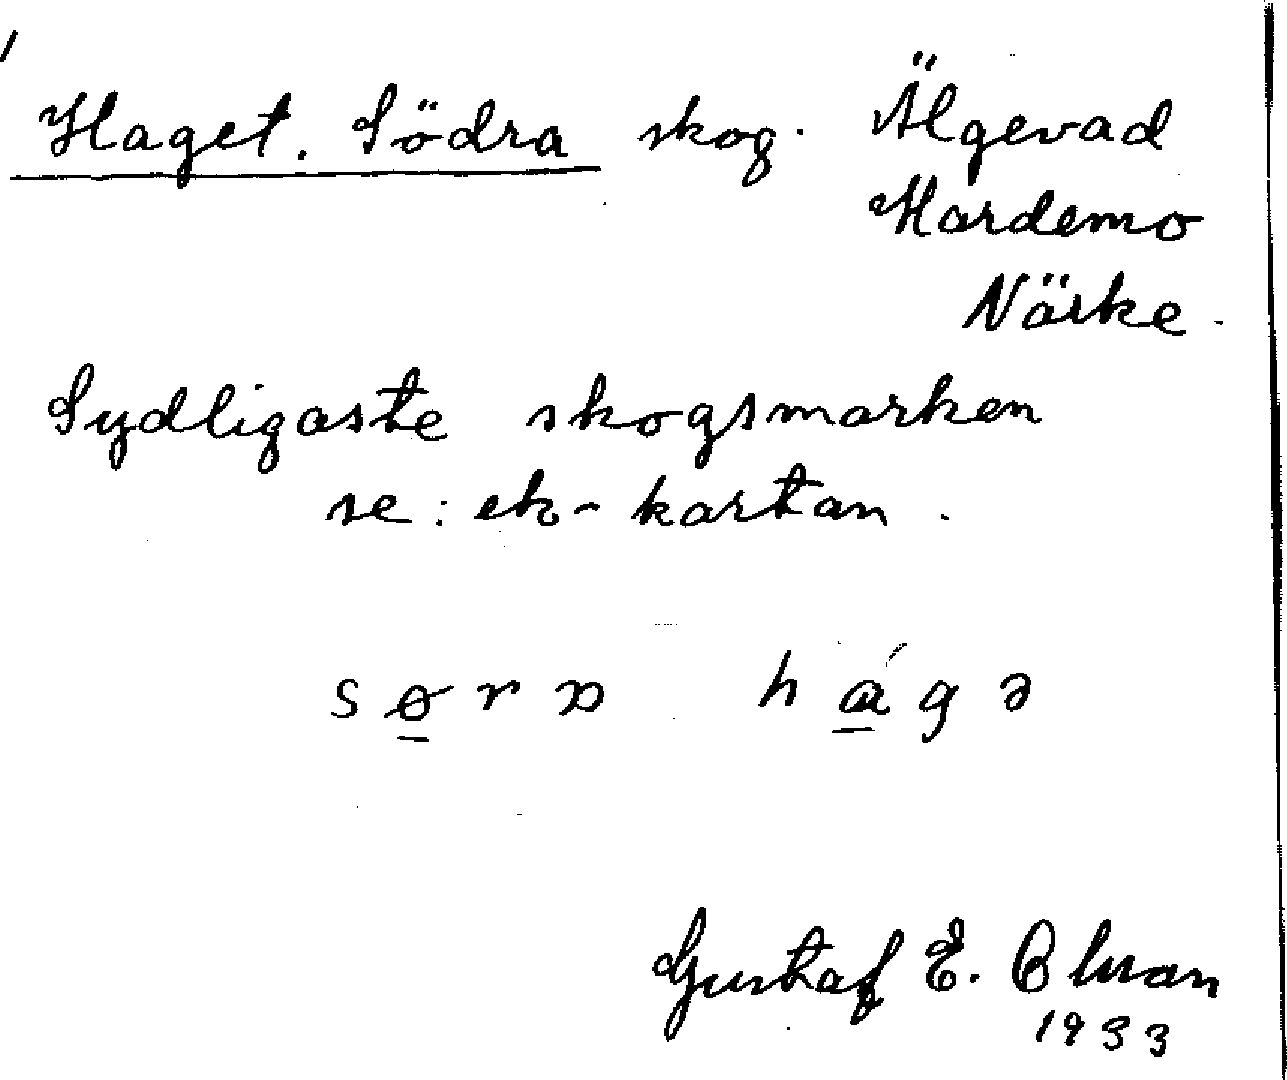 Haget. Södra skog. Älgevad
Hardemo
Närke.
Sydligaste skogsmarken
se: ek-kartan.
Gustaf E.
1933